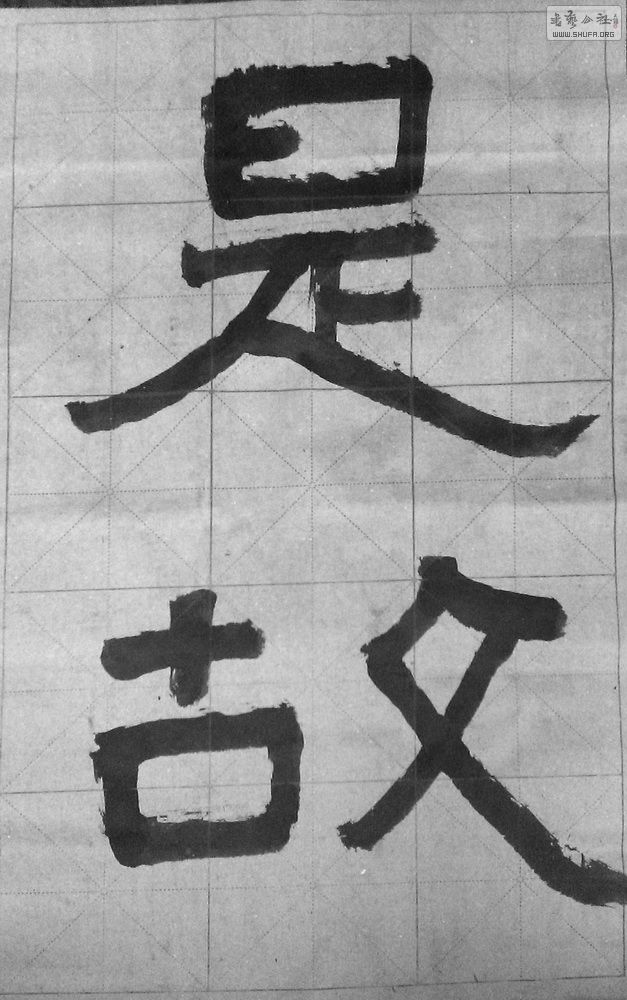 是
故
書藝公社
WWW.SHUFA.ORG